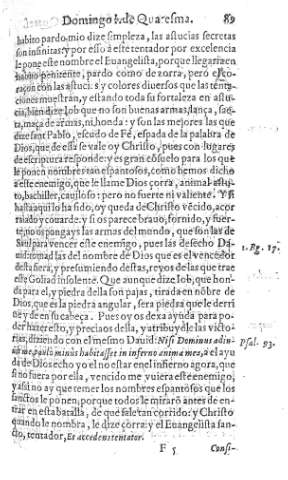 Domingo I. de Quaresma. 89
habito pardo mio dize simpleza, las astucias secretas
son infinitas: y por esso à este tentador por excelencia
le pone este nombre el Euangelista, porque llegaria en
habito penitente, pardo como de zorra, però el co-
raçon con las astucias y colores diuersos que las tenta-
ciones muestran, y estando toda su fortaleza en astu-
cia, bien dize Iob que no son buenas armas, lança, sae-
ta, maça de armas, ni, honda: y son las mejores las que
dize san Pablo, escudo de Fé, espada de la palabra de
Dios, que de essa se vale oy Christo, pues con lugares
de escriptura responde: y es gran cōsuelo para los que
le ponen nombres tan espantosos, como hemos dicho
a este enemigo, que le llame Dios çorra, animal astu-
to, bachiller, cauiloso: pero no fuerte ni valiente. Y si
hasta aqui lo ha sido, oy queda de Christo vēcido, acor
ralado y couarde. y si os parece brauo, fornido, y fuer-
te, no os pongays las armas del mundo, que son las de
Saul para vencer este enemigo, pues las desechò Da- 1. Rg. 17.
uid: tomad las del nombre de Dios que es el vencedor
desta fiera, y presumiendo destas, reyos de las que trae
este Goliad insolente. Que aunque dize Iob, que hon-
da para el, y piedra della son pajas, tirada en nōbre de
Dios, que es la piedra angular, sera piedra que le derri
ne y de en su cabeça. Pues oy os dexa ayuda para po-
der hazer esto, y preciaos della, y atribuyd le las victo-
rias, diziendo con el mesmo Dauid: Nisi Dominus adiu- Psal. 93.
uisset me, paulò minus habitasset in inferno anima mea, à el ayu
da de Dios echo yo el no estar en el infierno agora, que
si no fuera por ella, vencido me vuiera este enemigo,
y assi no ay que temer los nombres espantosos que los
sanctos le ponen, porque todos le miraró antes de en-
trar en esta batalla, de que sale tan corrido: y Christo
quando le nombra, le dize çorra: y el Euangelista san-
cto, tentador, Et accedens tentator.
F 5 Consi-